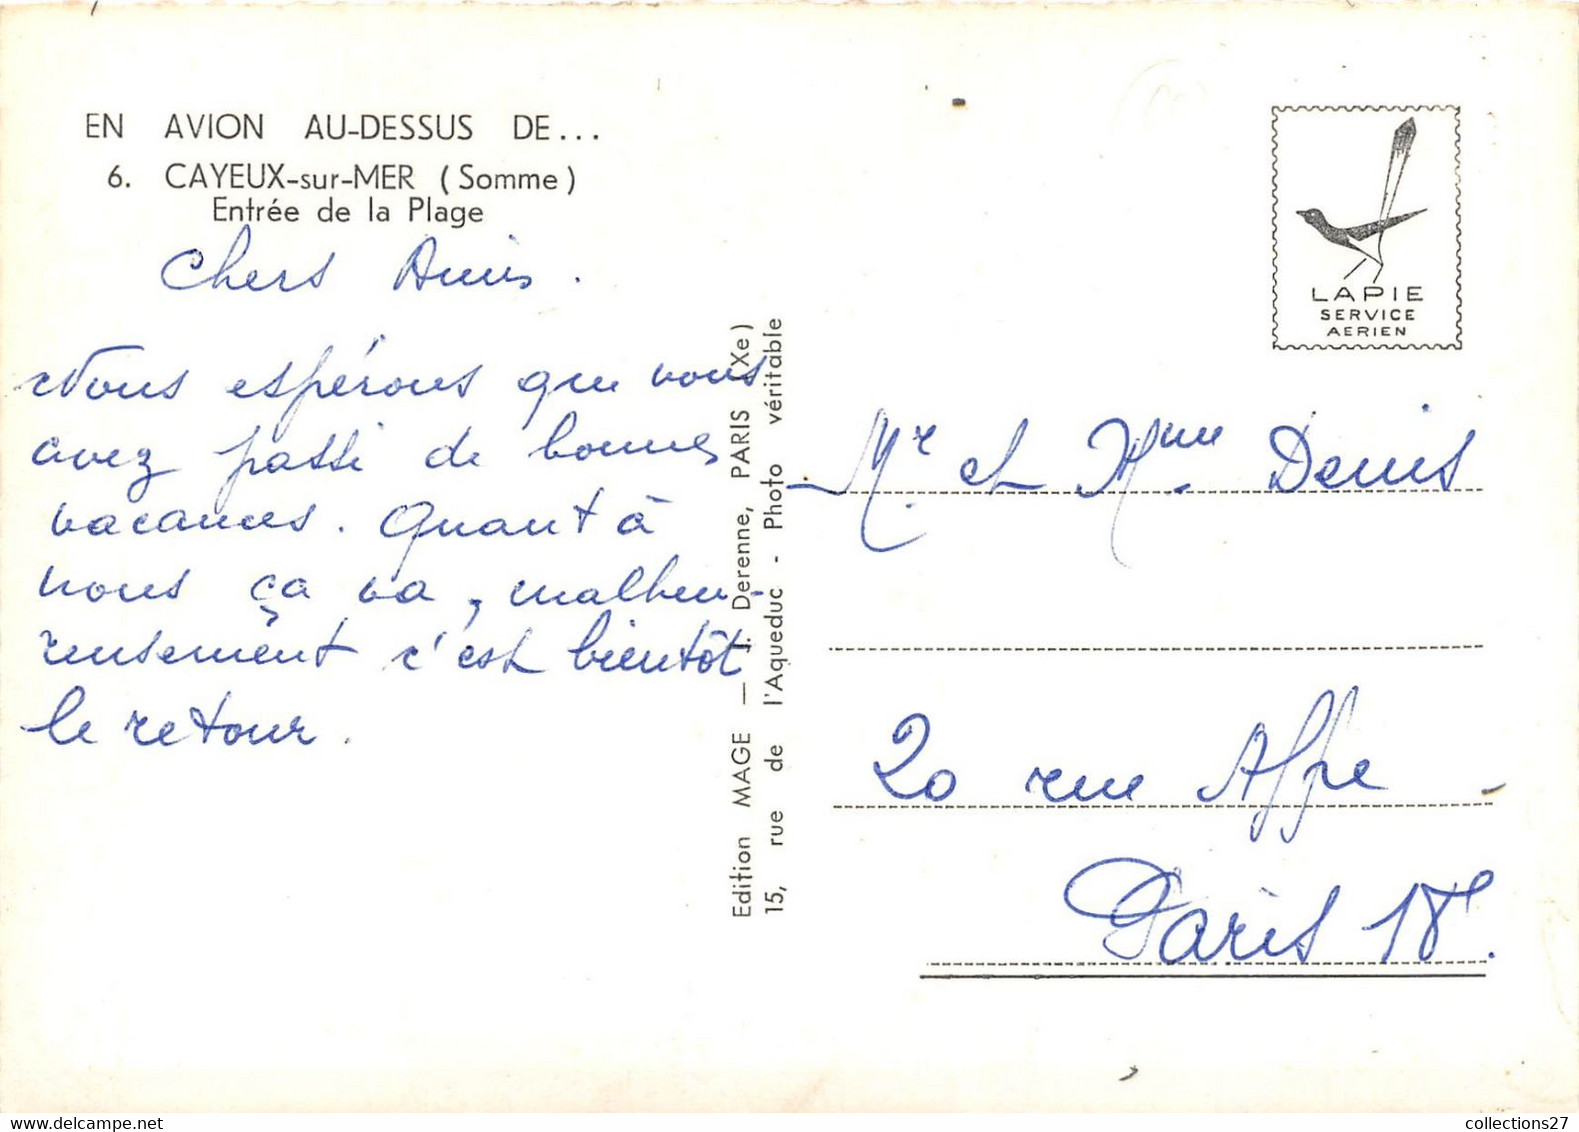 EN AVION AU-DESSUS DE...
6. CAYEUX-sur-MER (Somme)
Entrée de la Plage
Chers Amis.
Nous espérons que vous
avez passé de bonnes
vacances. Quant à
nous ça va, malheu-
reusement c'est bientôt
le retour.
Edition MAGE — J. Derenne, PARIS (Xe)
15, rue de l'Aqueduc - Photo véritable
LAPIE
SERVICE
AERIEN
Mr et Mme Denis
20 rue
Paris 18e.
collections27